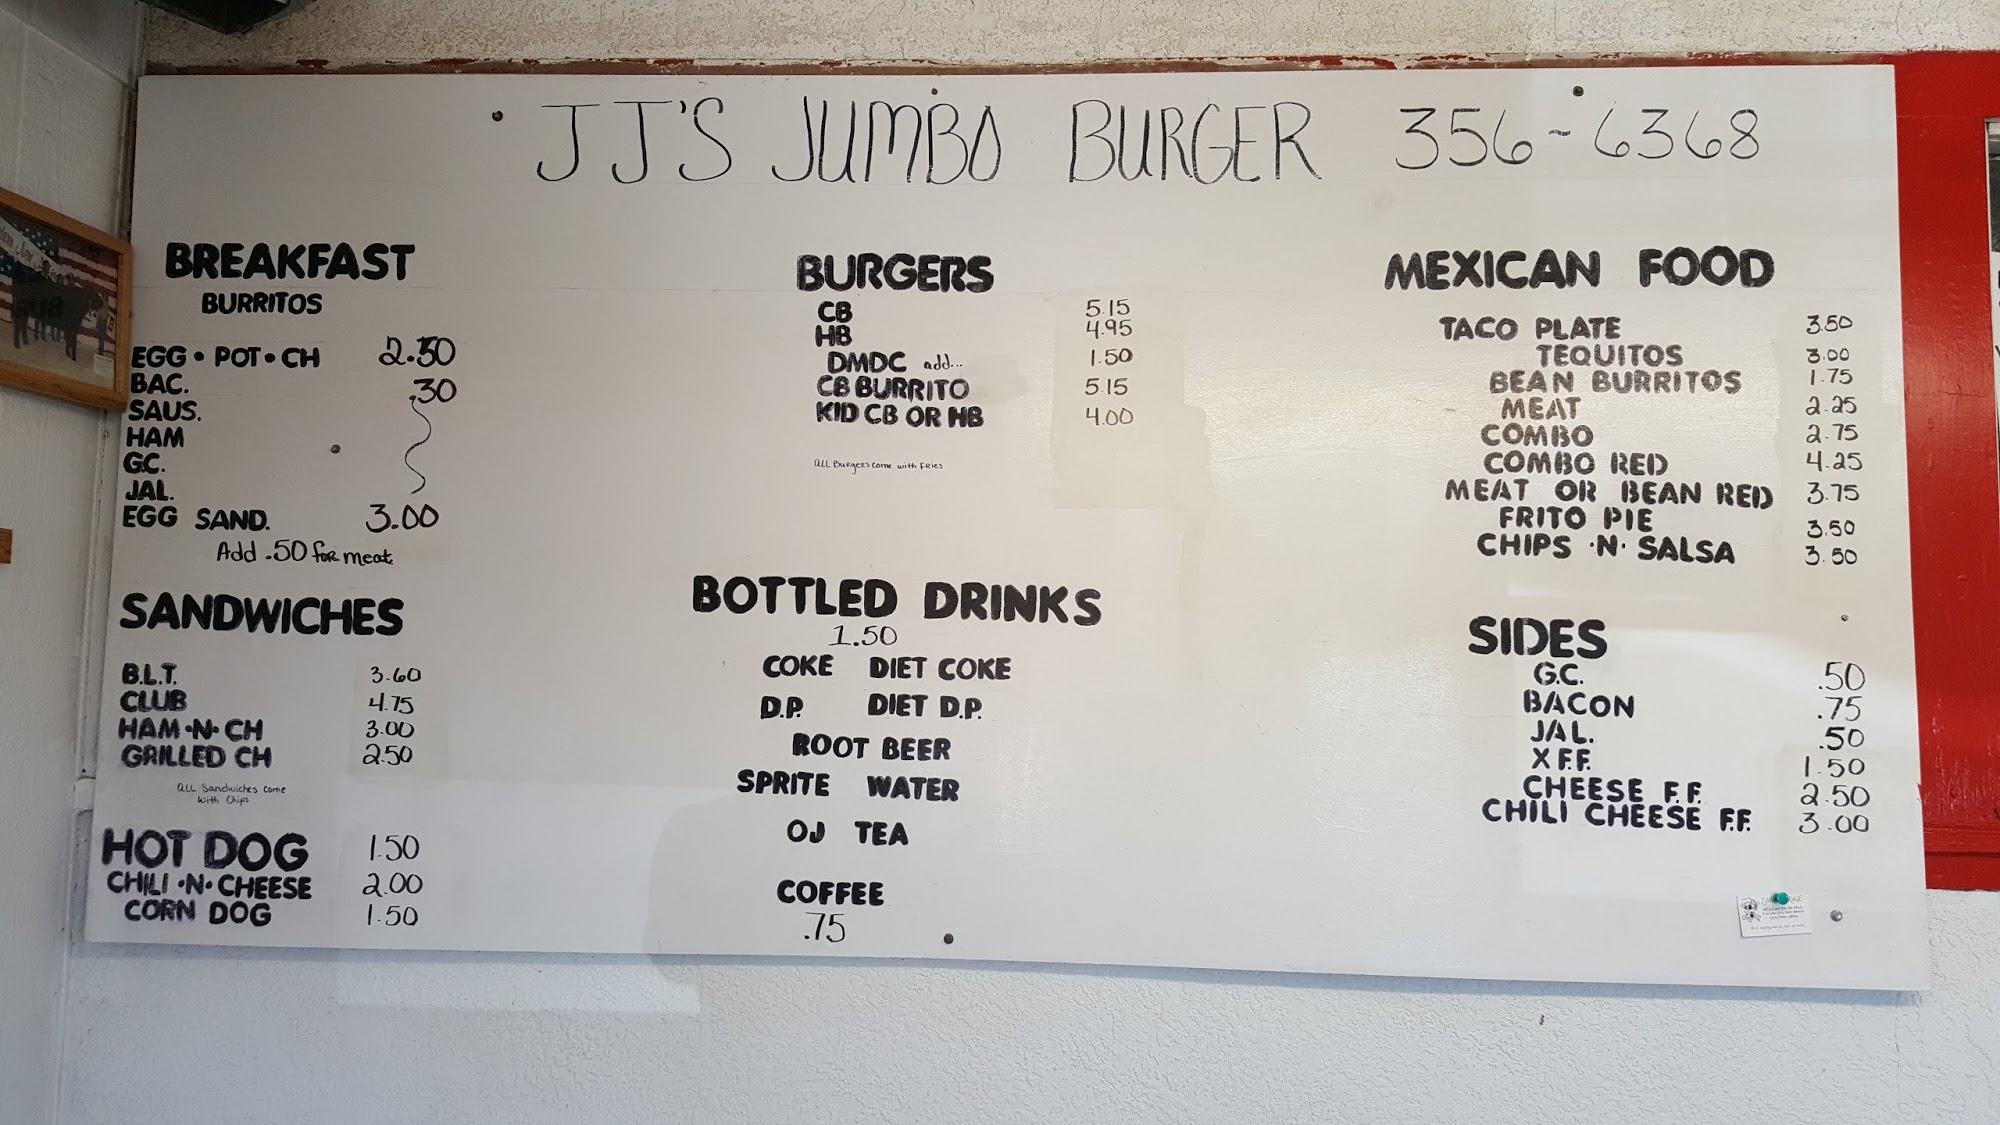 JJ'S JUMBO BURGER 356-6368
BREAKFAST
BURRITOS
EGG • POT • CH 2.50
BAC. .30
SAUS.
HAM
G.C.
JAL.
EGG SAND. 3.00
Add .50 for meat
SANDWICHES
B.L.T. 3.60
CLUB 4.75
HAM •N• CH 3.00
GRILLED CH 2.50
ALL Sandwiches come
with Chips
HOT DOG 1.50
CHILI •N• CHEESE 2.00
CORN DOG 1.50
BURGERS
CB 5.15
HB 4.95
DMDC add... 1.50
CB BURRITO 5.15
KID CB OR HB 4.00
ALL Burgers come with Fries
BOTTLED DRINKS
1.50
COKE DIET COKE
D.P. DIET D.P.
ROOT BEER
SPRITE WATER
OJ TEA
COFFEE
.75
MEXICAN FOOD
TACO PLATE 3.50
TEQUITOS 3.00
BEAN BURRITOS 1.75
MEAT 2.25
COMBO 2.75
COMBO RED 4.25
MEAT OR BEAN RED 3.75
FRITO PIE 3.50
CHIPS •N• SALSA 3.50
SIDES
G.C. .50
BACON .75
JAL. .50
X F.F. 1.50
CHEESE F.F. 2.50
CHILI CHEESE F.F. 3.00